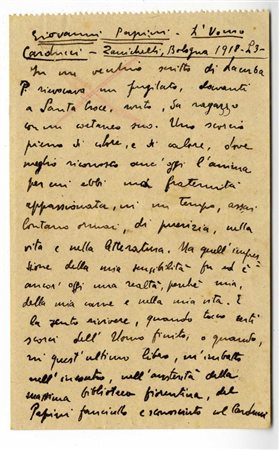 Giovanni Papini - L'Uomo
Carducci - Zanichelli, Bologna 1918 - L3 -
In un vecchio scritto di Lacerba
P. rievocava un pugilato, davanti
a Santa Croce, avuto, da ragazzo
con un coetaneo suo. Uno scorcio
pieno di colore, e di calore, dove
meglio riconosco anc'oggi l'anima
per cui ebbi una fraternità
appassionata, in un tempo, assai
lontano ormai, di puerizia, nella
vita e nella letteratura. Ma quell'impres-
sione della mia sensibilità fu ed è
ancor'oggi una realtà, perché mia,
della mia carne e nella mia vita. E
la sento rivivere, quando tocco certi
scorci dell'Uomo finito, o quando,
in quest'ultimo libro, m'imbatto
nell'incontro, nell'austerità della
massima biblioteca fiorentina, del
Papini fanciullo e sconosciuto col Carducci